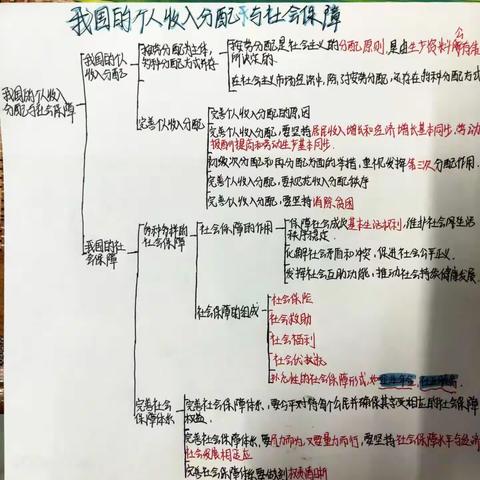 我国的个人收入分配与社会保障
我国的个人收入
分配与社会保障
我国的个人
收入分配
按劳分配为主体,
多种分配方式并存
按劳分配是社会主义的分配原则,是由生产资料公有制
所决定的.
在社会主义市场经济中,除了按劳分配,还存在多种分配方式
完善个人收入分配
完善个人收入分配的原因
完善个人收入分配,要坚持居民收入增长和经济增长基本同步,劳动
报酬提高和劳动生产基本同步.
初级次分配和再分配方面的举措,重视发挥第三次分配作用.
完善个人收入分配,要规范收入分配秩序
完善个人收入分配,要坚持消除贫困
我国的社会
保障
多种多样的
社会保障
社会保障的作用
保障社会成员基本生活权利,维护社会生活
秩序稳定.
化解社会矛盾和冲突,促进社会公平正义.
发挥社会互助功能,推动社会持续健康发展.
社会保障的组成
社会保险
社会救助
社会福利
社会优抚
补充性的社会保障形式,如
完善社会
保障体系
完善社会保障体系,要公平对待每个公民并确保其享受相应的社会保障
权益.
完善社会保障体系,要尽力而为,又要量力而行,要坚持社会保障水平与经济
社会发展相适应
完善社会保障体系要做到权责清晰